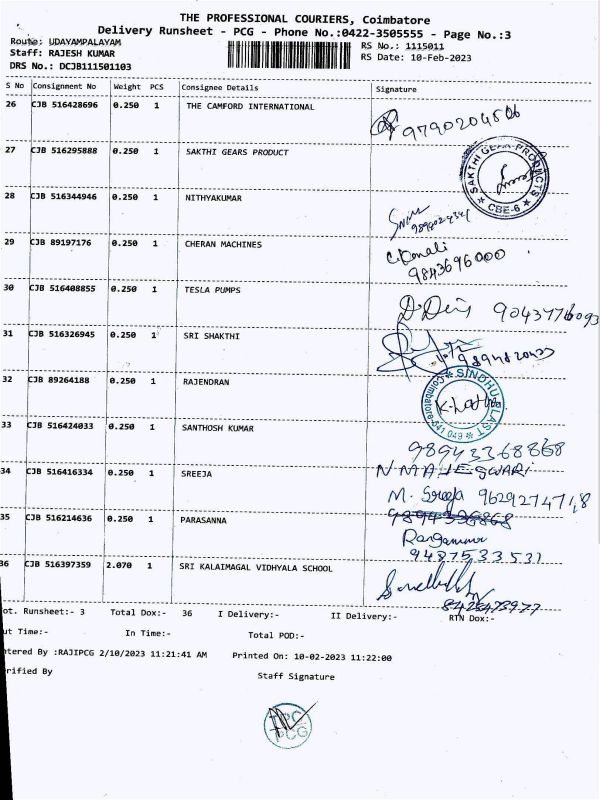 THE PROFESSIONAL COURIERS, Coimbatore
Delivery Runsheet - PCG - Phone No.:0422-3505555 - Page No.:3
Route: UDAYAMPALAYAM RS No.: 1115011
Staff: RAJESH KUMAR RS Date: 10-Feb-2023
DRS No.: DCJB111501103
S No Consignment No Weight PCS Consignee Details Signature
26 CJB 516428696 0.250 1 THE CAMFORD INTERNATIONAL 9790204806
27 CJB 516295888 0.250 1 SAKTHI GEARS PRODUCT SAKTHI GEAR PRODUCTS CBE-6
28 CJB 516344946 0.250 1 NITHYAKUMAR
29 CJB 89197176 0.250 1 CHERAN MACHINES 9843696000
30 CJB 516408855 0.250 1 TESLA PUMPS 9043776093
31 CJB 516326945 0.250 1 SRI SHAKTHI
32 CJB 89264188 0.250 1 RAJENDRAN Coimbatore-641 049
33 CJB 516424033 0.250 1 SANTHOSH KUMAR 98943368868
34 CJB 516416334 0.250 1 SREEJA
M. Sreeja 9629274718
35 CJB 516214636 0.250 1 PARASANNA
9487533531
36 CJB 516397359 2.070 1 SRI KALAIMAGAL VIDHYALA SCHOOL
8428473977
ot. Runsheet:- 3 Total Dox:- 36 I Delivery:- II Delivery:- RTN Dox:-
ut Time:- In Time:- Total POD:-
ntered By :RAJIPCG 2/10/2023 11:21:41 AM Printed On: 10-02-2023 11:22:00
erified By Staff Signature
PCG